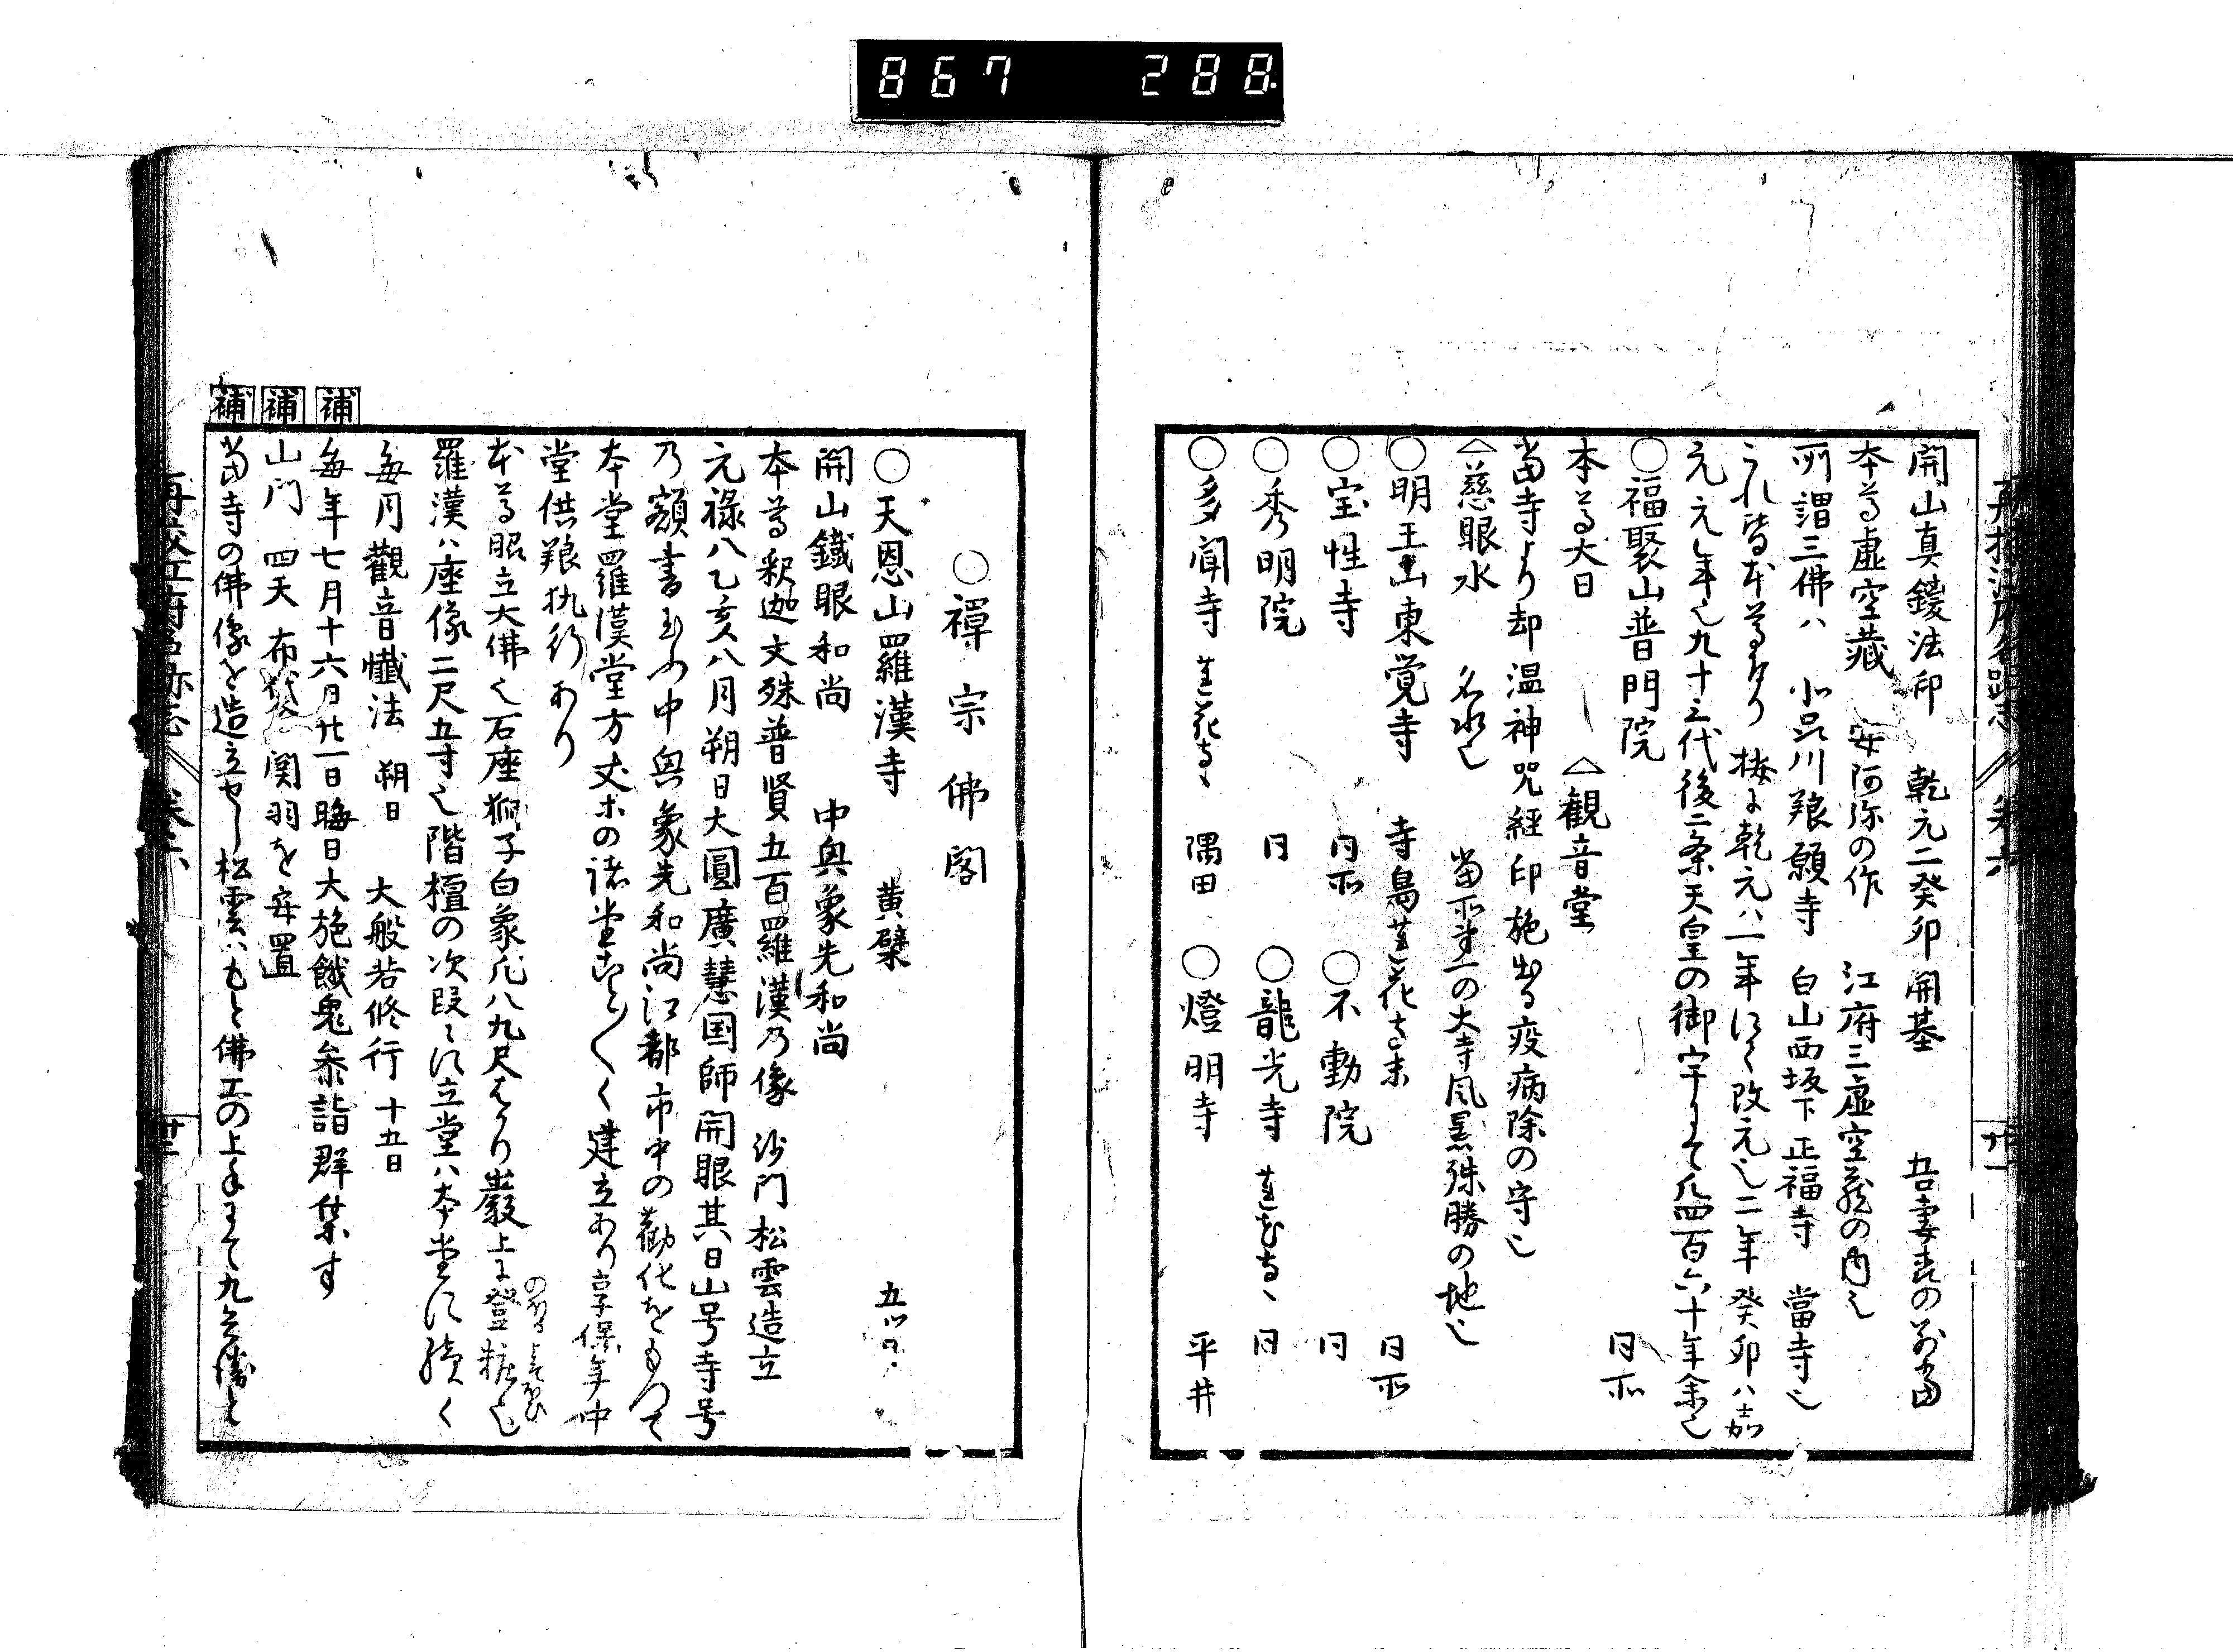 867 288
開山真鑁法印 乾元二癸卯開基 吾妻森の別當
本尊虚空藏 安阿弥の作 江府三虚空蔵の内也
所謂三佛ハ 小品川養願寺 白山西坂下正福寺 當寺也
これ皆本尊なり 按に乾元ハ一年にして改元也二年癸卯ハ嘉
元々年也九十三代後二条天皇の御宇にて凡四百六十年余也
○福聚山普門院 同所
本尊大日 △観音堂
當寺より却温神咒経印施出る疫病除の守也
△慈眼水 名水也 當所第一の大寺風景殊勝の地也
○明王山東覚寺 寺島蓮花寺末 同所
○宝性寺 同所 ○不動院 同
○秀明院 同 ○龍光寺 蓮花寺、 同
○多聞寺 蓮花寺、 隅田 ○燈明寺 平井
再校江府名跡志 巻六 廿一
○禪宗佛閣
○天恩山羅漢寺 黄檗 五ツ目
開山鐵眼和尚 中興象先和尚
本尊釈迦文殊普賢五百羅漢乃像 沙門松雲造立
元禄八乙亥八月朔日大圓廣慧国師開眼其日山号寺号
乃額書玉ふ中興象先和尚江都市中の勸化をもつて
本堂羅漢堂方丈ホの諸堂ことく建立あり享保年中
堂供養執行あり
本尊昭立大佛也石座獅子白象凡八九尺より巌上に登
羅漢ハ座像二尺五寸也階檀の次段に立堂ハ本堂に續く
毎月觀音懺法 朔日 大般若修行 十五日
補 毎年七月十六日廿一日晦日大施餓鬼参詣群集す
補 山門 四天 布袋 関羽を安置
補 當寺の佛像を造立せし松雲ハもと佛工の上手にて九兵衛と
再校江府名跡志 巻六 廿二